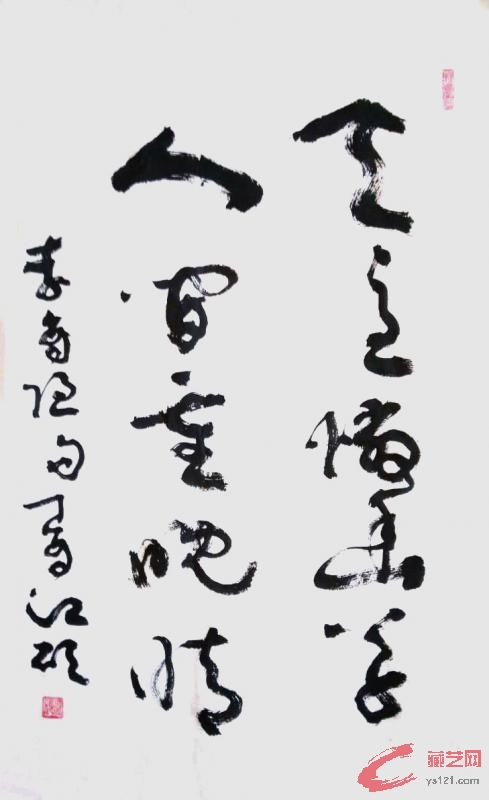 天意憐幽草
人间重晚晴
李商隐句
藏艺网
ys121.com